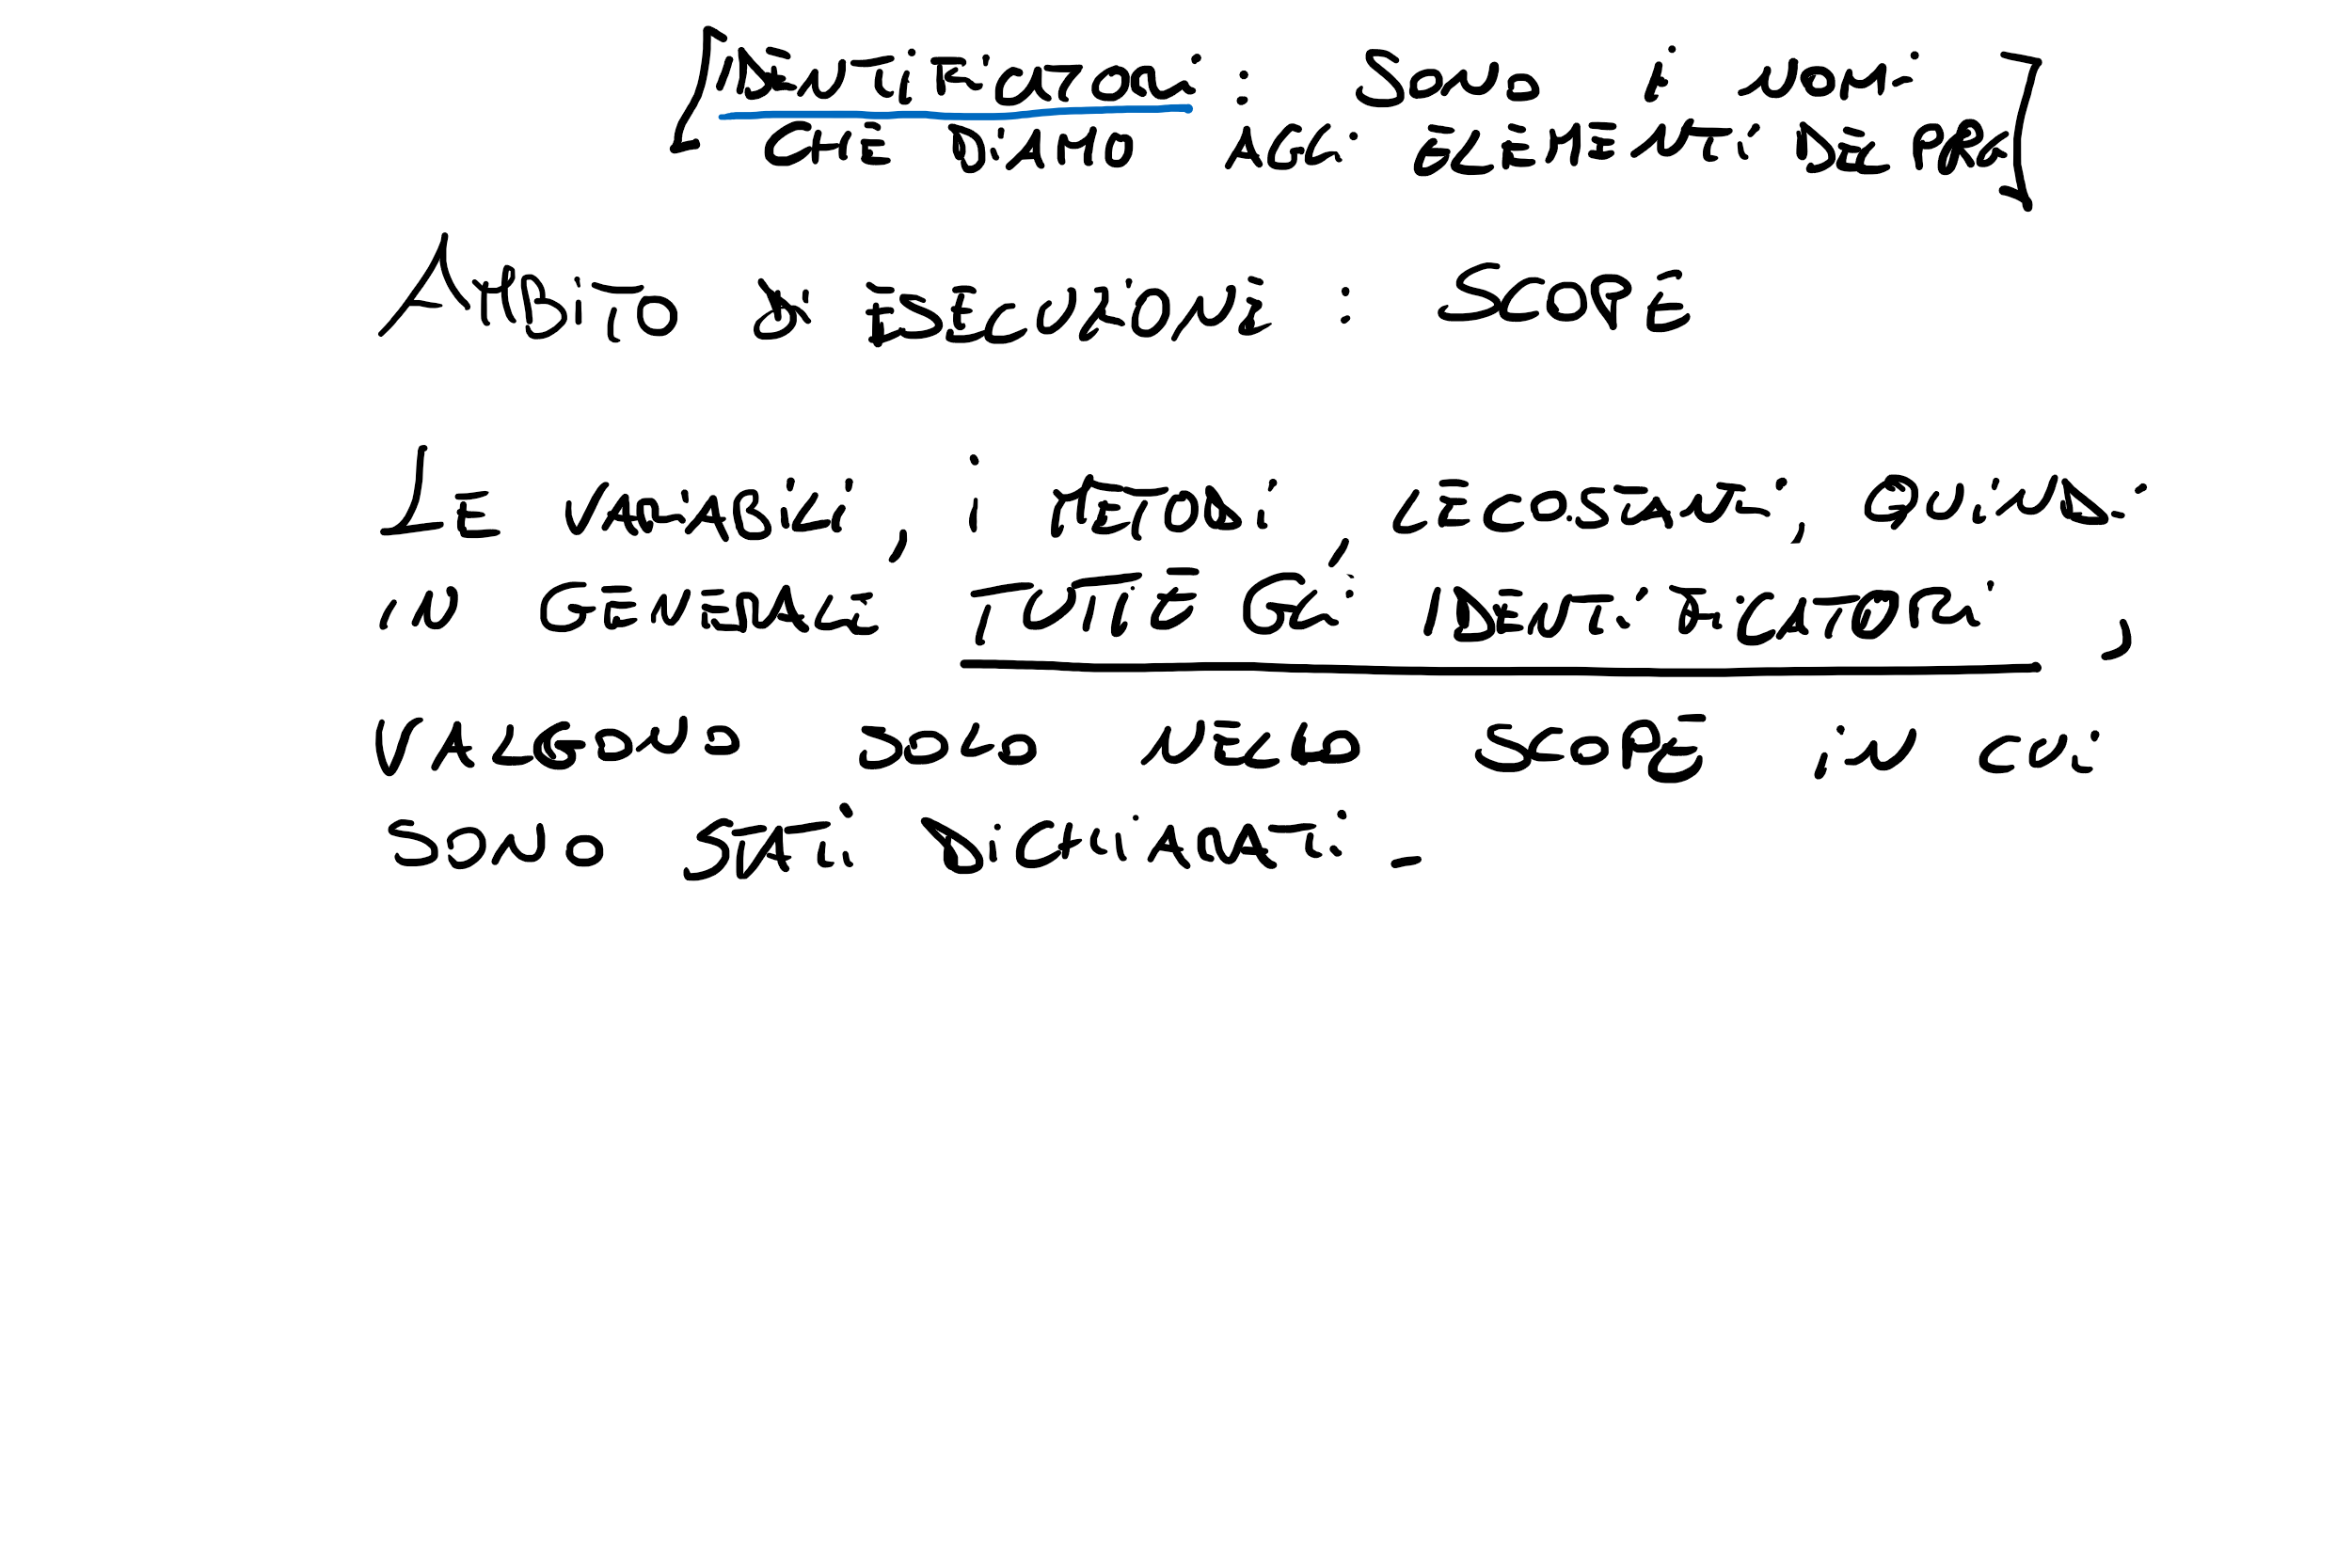 [IDENTIFICATORI: SONO I NOMI
CHE DIAMO AGLI ELEMENTI DEL PRG]
AMBITO DI ESECUZIONE: SCOPE
LE VARIABILI, I METODI, LE COSTANTI, QUINDI
IN GENERALE TUTTE GLI IDENTIFICATORI,
VALGONO SOLO NELLO SCOPE IN CUI
SONO STATI DICHIARATI.